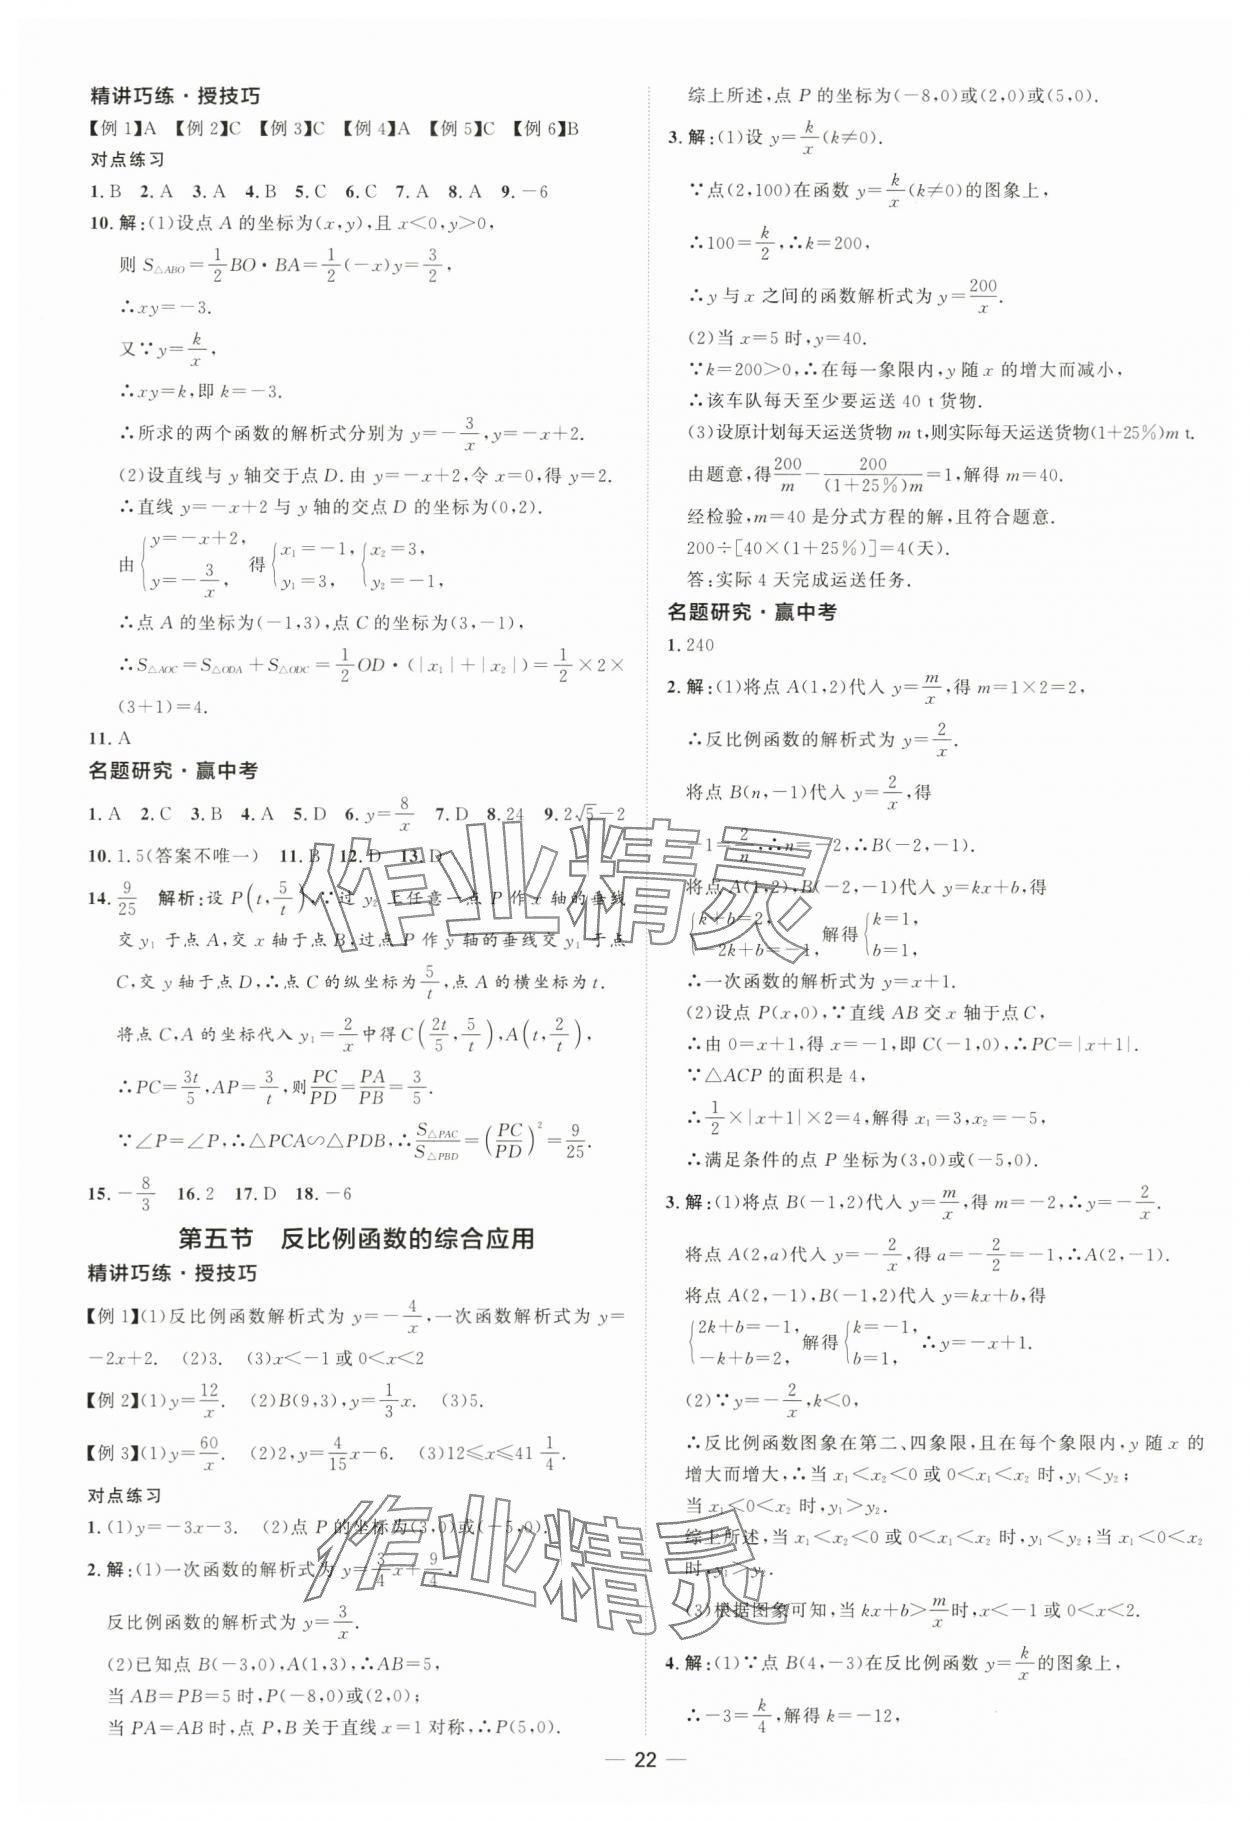 精讲巧练·授技巧
【例1】A 【例2】C 【例3】C 【例4】A 【例5】C 【例6】B
对点练习
1. B 2. A 3. A 4. B 5. C 6. C 7. A 8. A 9. －6
10. 解:(1)设点 A 的坐标为(x,y),且 x＜0,y＞0,
则 S△ABO＝1/2 BO·BA＝1/2(－x)y＝3/2,
∴xy＝－3.
又∵y＝k/x,
∴xy＝k,即 k＝－3.
∴所求的两个函数的解析式分别为 y＝－3/x,y＝－x＋2.
(2)设直线与 y 轴交于点 D. 由 y＝－x＋2,令 x＝0,得 y＝2.
∴直线 y＝－x＋2 与 y 轴的交点 D 的坐标为(0,2).
由{y＝－x＋2, y＝－3/x, 得{x₁＝－1, y₁＝3, {x₂＝3, y₂＝－1,
∴点 A 的坐标为(－1,3),点 C 的坐标为(3,－1),
∴S△AOC＝S△ODA＋S△ODC＝1/2 OD·(|x₁|＋|x₂|)＝1/2×2×
(3＋1)＝4.
11. A
名题研究·赢中考
1. A 2. C 3. B 4. A 5. D 6. y＝8/x 7. D 8. 24 9. 2√5－2
10. 1.5(答案不唯一) 11. B 12. D 13. D
14. 9/25 解析:设 P(t,5/t),∵过 y₂ 上任意一点 P 作 x 轴的垂线
交 y₁ 于点 A,交 x 轴于点 B,过点 P 作 y 轴的垂线交 y₁ 于点
C,交 y 轴于点 D,∴点 C 的纵坐标为5/t,点 A 的横坐标为 t.
将点 C,A 的坐标代入 y₁＝2/x中得 C(2t/5,5/t),A(t,2/t),
∴PC＝3t/5,AP＝3/t,则PC/PD＝PA/PB＝3/5.
∵∠P＝∠P,∴△PCA∽△PDB,∴S△PAC/S△PBD＝(PC/PD)²＝9/25.
15. －8/3 16. 2 17. D 18. －6
第五节 反比例函数的综合应用
精讲巧练·授技巧
【例1】(1)反比例函数解析式为 y＝－4/x,一次函数解析式为 y＝
－2x＋2. (2)3. (3)x＜－1 或 0＜x＜2
【例2】(1)y＝12/x. (2)B(9,3),y＝1/3 x. (3)5.
【例3】(1)y＝60/x. (2)2,y＝4/15 x－6. (3)12≤x≤41 1/4.
对点练习
1. (1)y＝－3x－3. (2)点 P 的坐标为(3,0)或(－5,0).
2. 解:(1)一次函数的解析式为 y＝3/4 x＋9/4,
反比例函数的解析式为 y＝3/x.
(2)已知点 B(－3,0),A(1,3),∴AB＝5,
当 AB＝PB＝5 时,P(－8,0)或(2,0);
当 PA＝AB 时,点 P,B 关于直线 x＝1 对称,∴P(5,0).
综上所述,点 P 的坐标为(－8,0)或(2,0)或(5,0).
3. 解:(1)设 y＝k/x(k≠0).
∵点(2,100)在函数 y＝k/x(k≠0)的图象上,
∴100＝k/2,∴k＝200,
∴y 与 x 之间的函数解析式为 y＝200/x.
(2)当 x＝5 时,y＝40.
∵k＝200＞0,∴在每一象限内,y 随 x 的增大而减小,
∴该车队每天至少要运送 40 t 货物.
(3)设原计划每天运送货物 m t,则实际每天运送货物(1＋25%)m t.
由题意,得200/m－200/(1＋25%)m＝1,解得 m＝40.
经检验,m＝40 是分式方程的解,且符合题意.
200÷[40×(1＋25%)]＝4(天).
答:实际 4 天完成运送任务.
名题研究·赢中考
1. 240
2. 解:(1)将点 A(1,2)代入 y＝m/x,得 m＝1×2＝2,
∴反比例函数的解析式为 y＝2/x.
将点 B(n,－1)代入 y＝2/x,得
－1＝2/n,∴n＝－2,∴B(－2,－1).
将点 A(1,2),B(－2,－1)代入 y＝kx＋b,得
{k＋b＝2, －2k＋b＝－1, 解得{k＝1, b＝1,
∴一次函数的解析式为 y＝x＋1.
(2)设点 P(x,0),∵直线 AB 交 x 轴于点 C,
∴由 0＝x＋1,得 x＝－1,即 C(－1,0),∴PC＝|x＋1|.
∵△ACP 的面积是 4,
∴1/2×|x＋1|×2＝4,解得 x₁＝3,x₂＝－5,
∴满足条件的点 P 坐标为(3,0)或(－5,0).
3. 解:(1)将点 B(－1,2)代入 y＝m/x,得 m＝－2,∴y＝－2/x.
将点 A(2,a)代入 y＝－2/x,得 a＝－2/2＝－1,∴A(2,－1).
将点 A(2,－1),B(－1,2)代入 y＝kx＋b,得
{2k＋b＝－1, －k＋b＝2, 解得{k＝－1, b＝1, ∴y＝－x＋1.
(2)∵y＝－2/x,k＜0,
∴反比例函数图象在第二、四象限,且在每个象限内,y 随 x 的
增大而增大,∴当 x₁＜x₂＜0 或 0＜x₁＜x₂ 时,y₁＜y₂;
当 x₁＜0＜x₂ 时,y₁＞y₂.
综上所述,当 x₁＜x₂＜0 或 0＜x₁＜x₂ 时,y₁＜y₂;当 x₁＜0＜x₂
时,y₁＞y₂.
(3)根据图象可知,当 kx＋b＞m/x时,x＜－1 或 0＜x＜2.
4. 解:(1)∵点 B(4,－3)在反比例函数 y＝k/x的图象上,
∴－3＝k/4,解得 k＝－12,
— 22 —
作业精灵
作业精灵